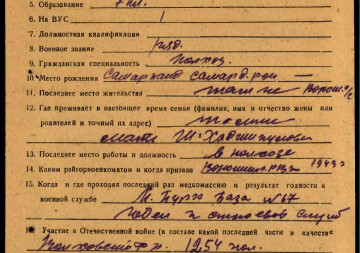 5. Образование 7 кл.
6. На ВУС
7. Должностная квалификация
8. Военное звание ряд.
9. Гражданская специальность колхоз.
10. Место рождения Самарканд самарк. рай —
11. Последнее место жительства там же
12. Где проживает в настоящее время семья (фамилия, имя и отчество жены или
родителей и точный их адрес) там же
мать
13. Последнее место работы и должность в колхозе
14. Каким райгорвоенкоматом и когда призван 1943 г
15. Когда и где проходил последний раз медкомиссию и результат годности к
военной службе База № 67
годен к строевой службе
16. Участие в Отечественной войне (в составе какой последней части и качестве
1254 пол.